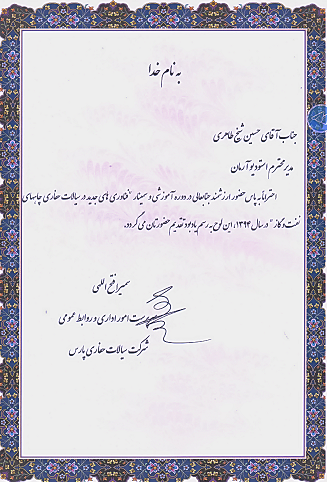 به نام خدا
جناب آقای حسین شیخ طاهری
مدیر محترم استودیو آرمان
احتراماً به پاس حضور ارزشمند جنابعالی در دوره آموزشی و سمینار "فناوری های جدید در سیالات حفاری چاههای
نفت و گاز" در سال ۱۳۹۴، این لوح به رسم یادبود تقدیم حضورتان می گردد.
سمیرا فتح اللهی
سرپرست امور اداری و روابط عمومی
شرکت سیالات حفاری پارس